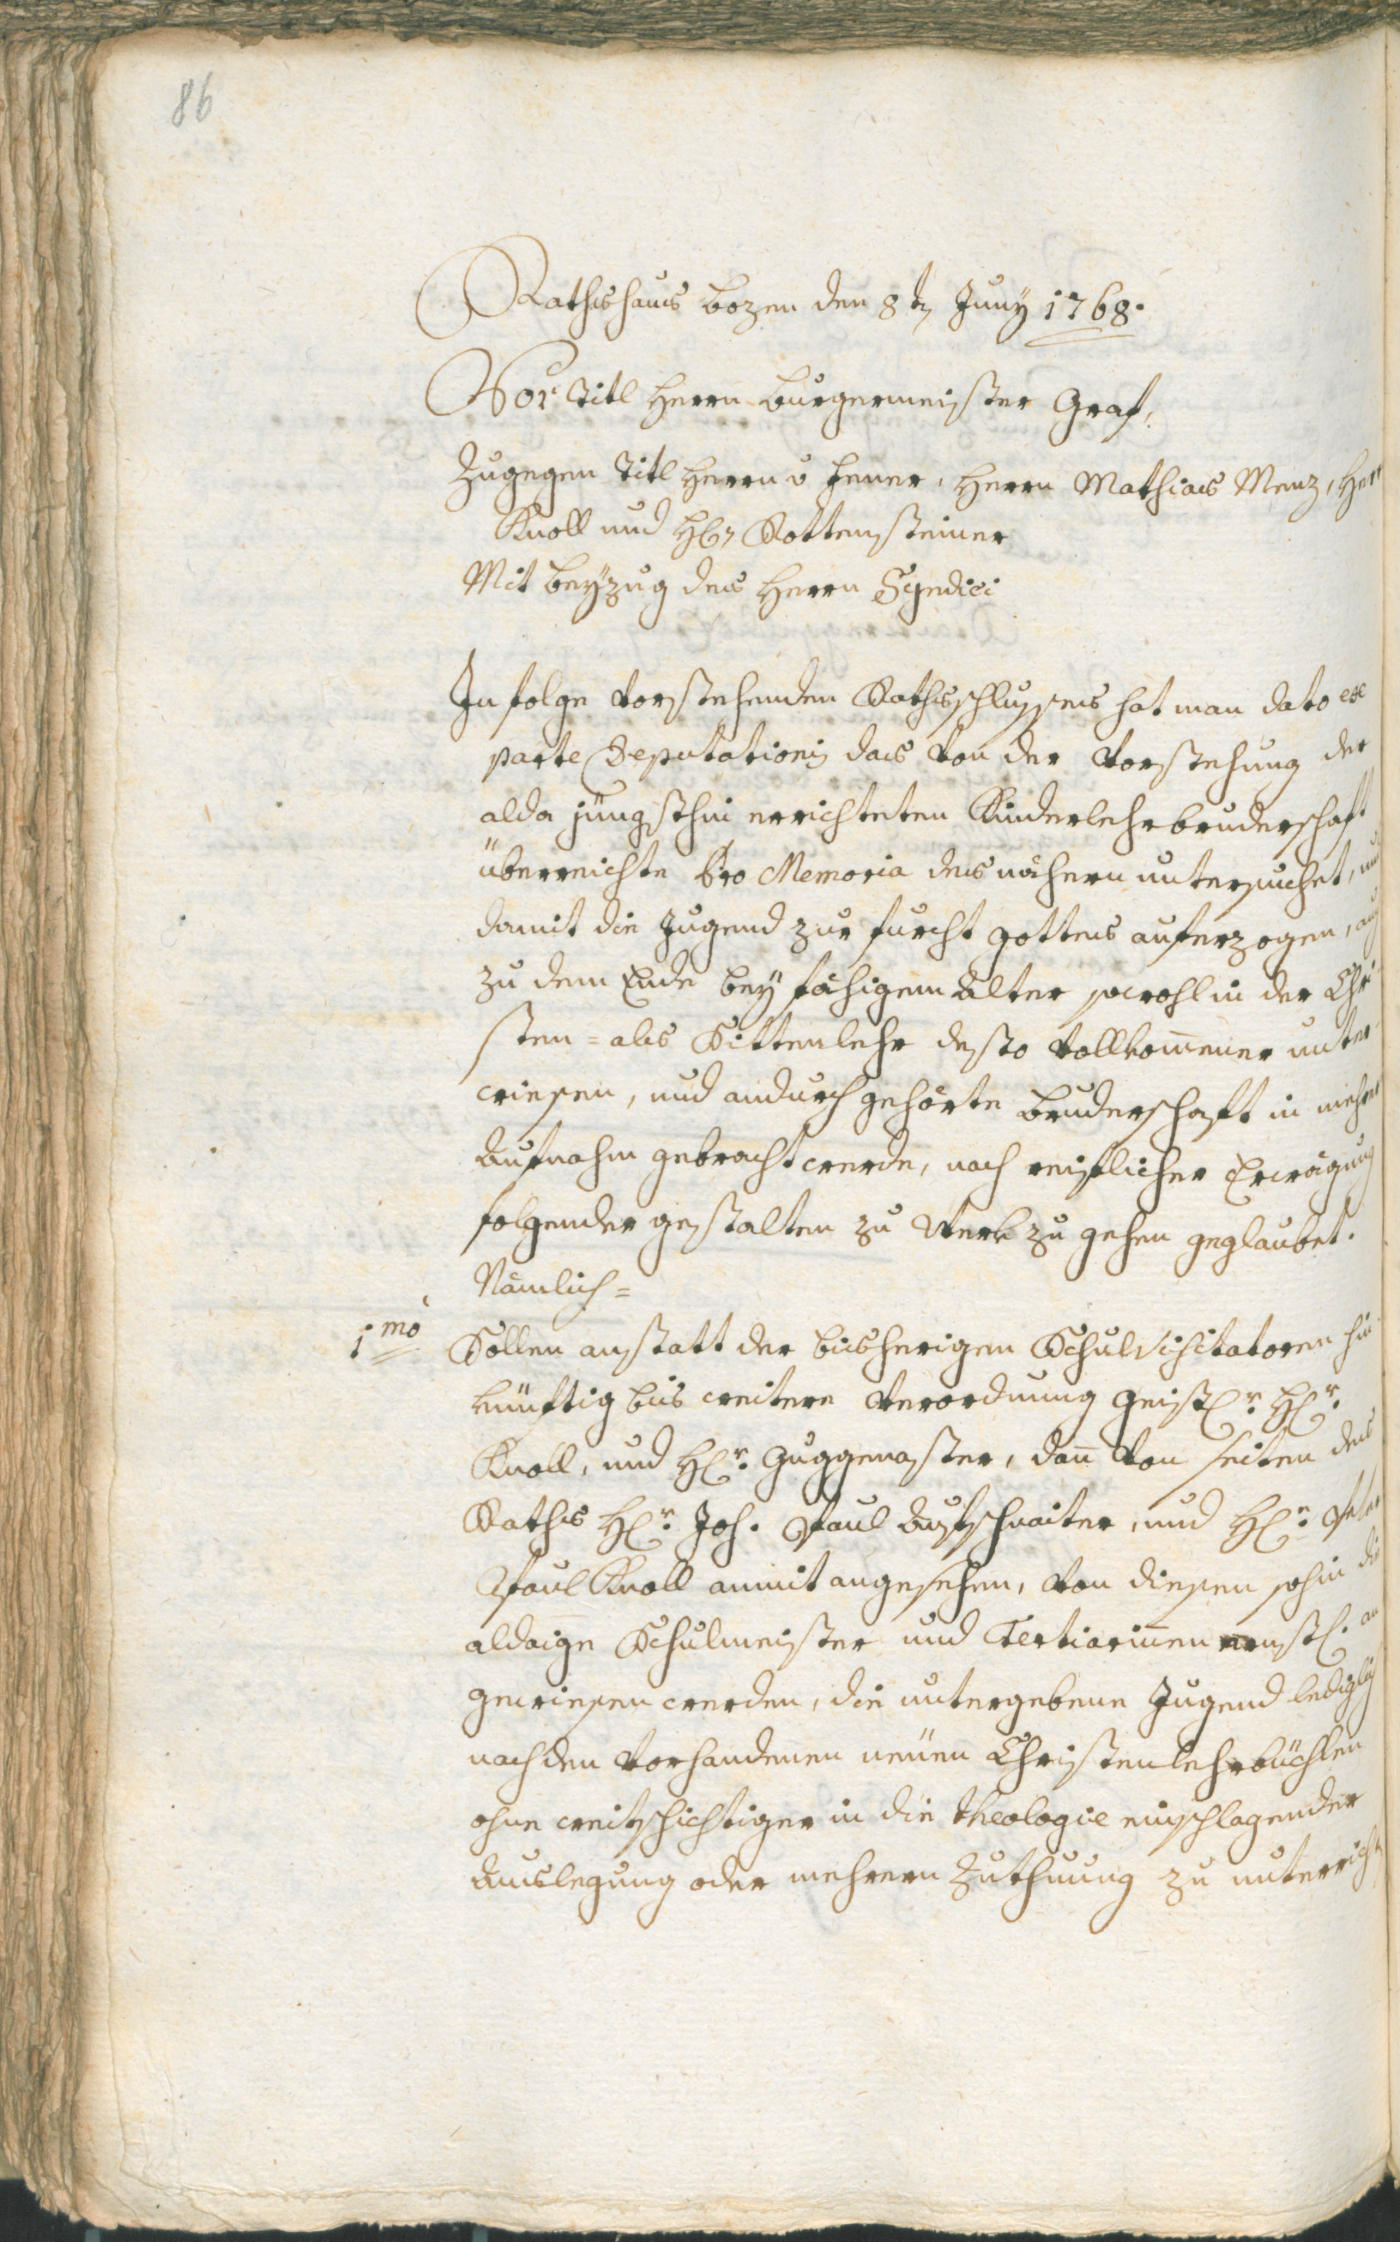 86
Rathshaus bozen den 8 tn Juny 1768.
Vor Titl Herrn burgermeister Graf,
Zugegen Titl Herrn v Hener, Herrn Mathias Menz, Herr
Knoll und H: Rottensteiner
Mit beÿzug des Herrn Syndici
In folge vorstehenden Rathsschlusses hat man dato ex
parte Deputationis das von der Vorstehung der
alda jüngsthin errichteten Kinderlehrbruderschaft
überreichte Pro Memoria des nähern untersuchet, und
damit die Jugend zur furcht gottes auferzogen, auch
zu dem Ende beÿ fähigem Alter sowohl in der Chri
sten= als Sittenlehr desto vollkommener unter
wiesen, und andurch gehörte bruderschaft in mehrer
Aufnahm gebracht werde, nach reiflicher Erwägung
folgender gestalten zu Werk zu gehen geglaubet.
Nämlich=
1mo
Sollen anstatt der bisherigen Schulvisitatoren hin
künftig bis weitere Verordnung geistl:r H:r
Knoll, und H:r Guggemoster, dan von seiten des
Raths H:r Joh. Paul Aufschnaiter, und H:r Peter
Paul Knoll anmit angesehen, von diesen sohin die
aldaige Schulmeister und Tertiarinen ernstl. an
gewiesen werden, die untergebene Jugend lediglich
nach den vorhandenen neuen Christenlehrbüchlen
ohne weitschichtiger in die theologie einschlagender
Auslegung oder mehrern Zuthuung zu unterricht